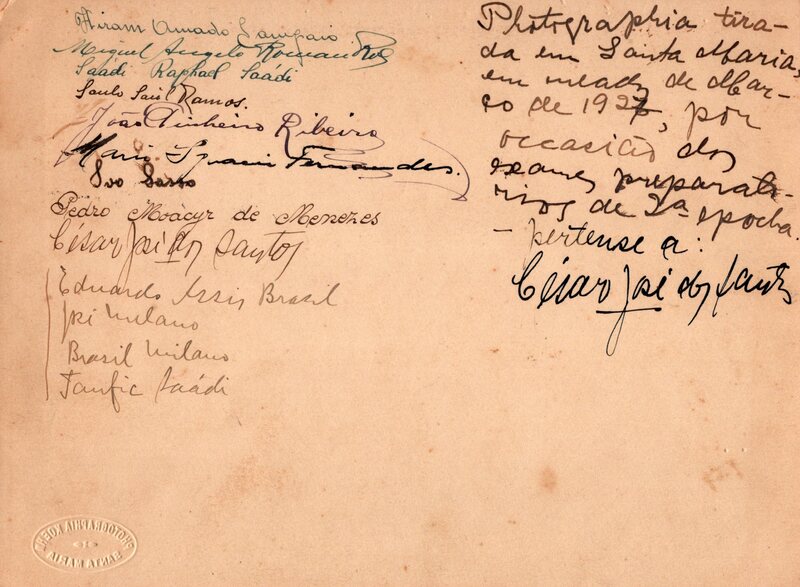 Hiram Amado Sampaio
Miguel Angelo Roman
Saádi Raphael Saádi
Saulo Saul Ramos.
João Pinheiro Ribeiro
Mario Fernandes.
Ivo
Pedro Moacyr de Menezes
César José dos Santos
Eduardo Assis Brasil
José Milano
Brasil Milano
Taufic Saádi
Photographia tira-
da em Santa Maria,
em meados de Mar-
ço de 1927, por
occasião dos
exames preparato-
rios de 2ª epocha.
- pertense a:
César José dos Santos
PHOTOGRAPHIA
SANTA MARIA